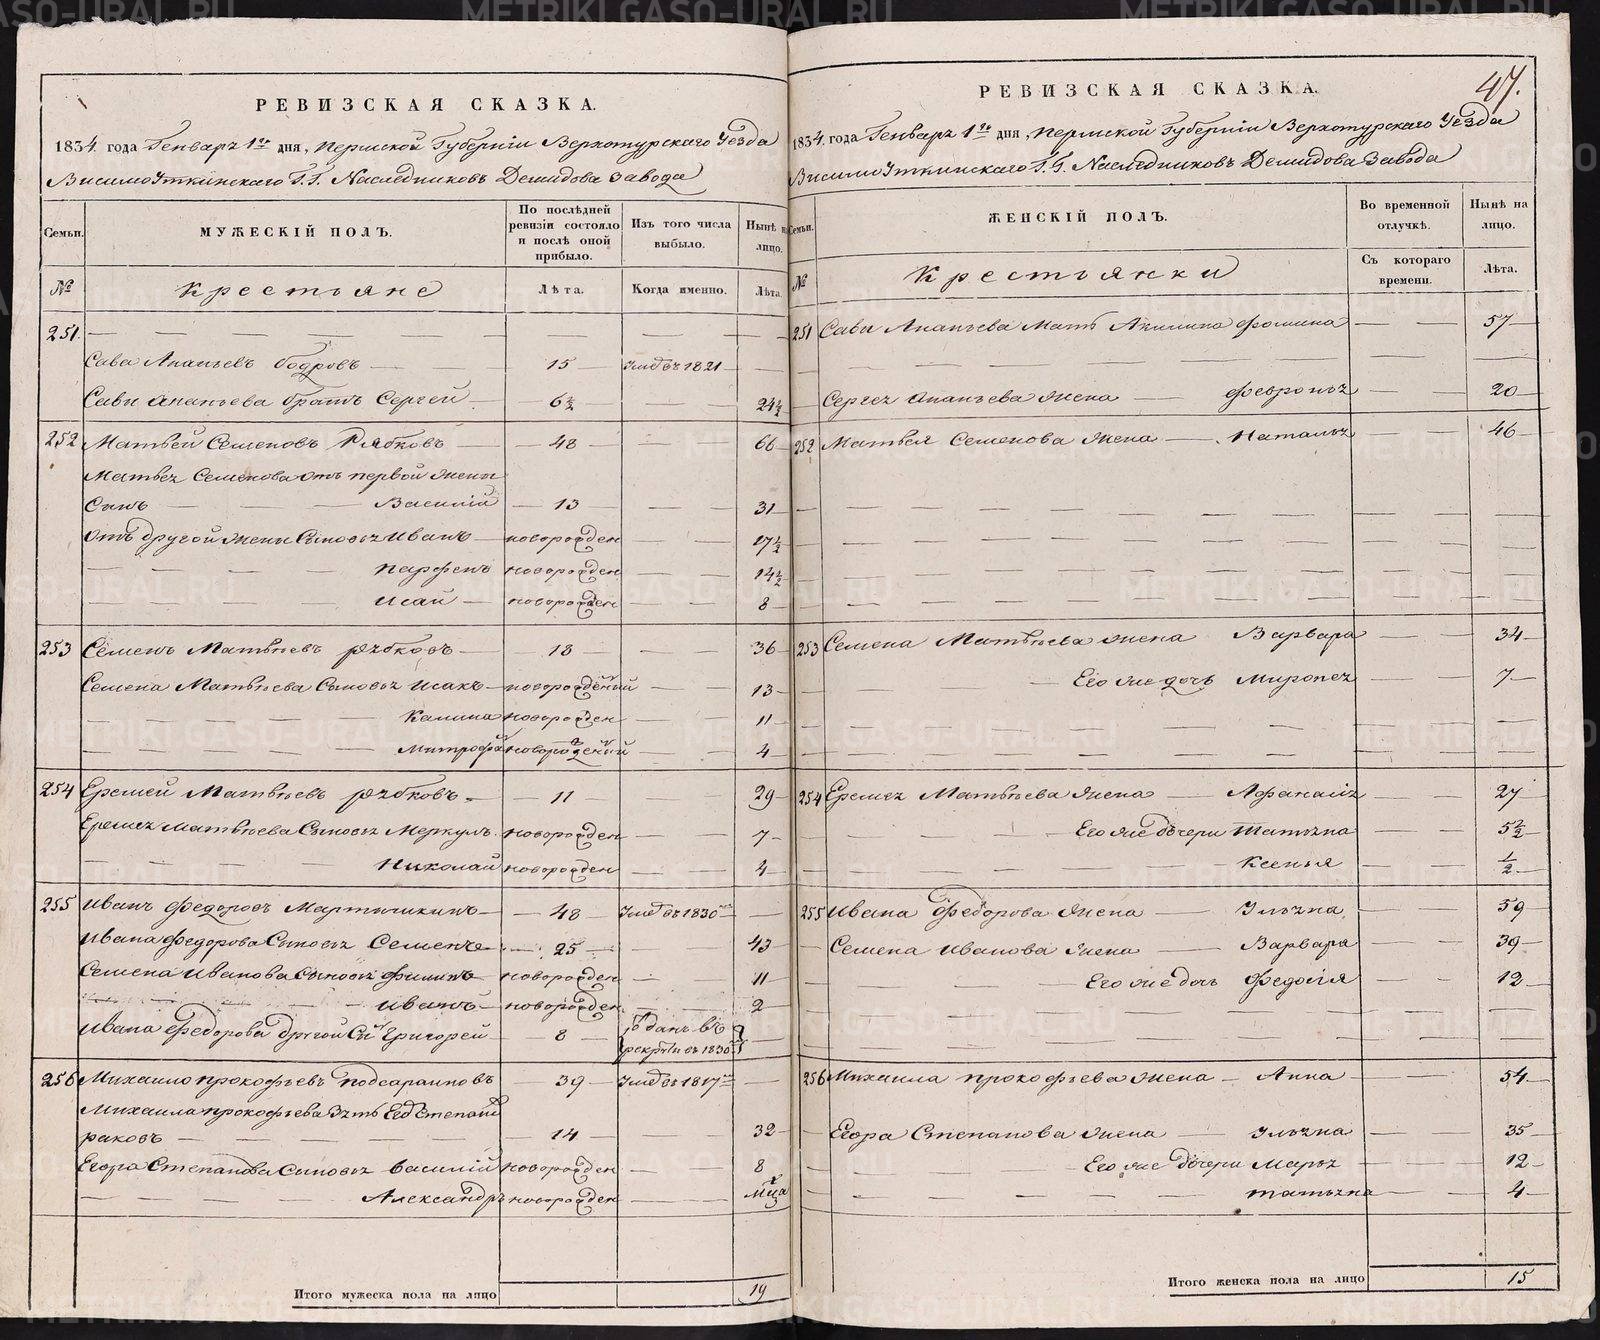 РЕВИЗСКАЯ СКАЗКА.
1834. года Генваря 1го дня, Пермской Губерніи Верхотурскаго Уезда
Висимо Уткинскаго Г.Г. Наследниковъ Демидова Завода
Семьи. МУЖЕСКІЙ ПОЛЪ. По послѣдней ревизіи состояло и послѣ оной прибыло. Изъ того числа выбыло. Нынѣ на лицо.
№ Крестьяне Лѣта. Когда именно. Лѣта.
251.
Сава Ананьевъ Бодровъ 15 Умеръ въ 1821
Савы Ананьева братъ Сергей 6½ 24½
252 Матвей Семеновъ Рябковъ 48 66
Матвея Семенова отъ первой жены
Сынъ Василій 13 31
Отъ другой жены Сыновья Иванъ новорожден 17½
Парфенъ новорожден 14½
Исай новорожден 8
253 Семенъ Матвѣевъ Рябковъ 18 36
Семена Матвѣева Сыновья Исакъ новорожденый 13
Калина новорожден 11
Митрофанъ новорожденый 4
254 Еремей Матвѣевъ Рябковъ 11 29
Еремея Матвѣева Сыновья Меркулъ новорожден 7
Николай новорожден 4
255 Иванъ Федоровъ Мартишкинъ 48 Умеръ въ 1830
Ивана Федорова Сыновья Семенъ 25 43
Семена Иванова Сыновья Филипъ новорожден 11
Иванъ новорожден 2
Ивана Федорова другой Сынъ Григорей 8 Отданъ въ
рекруты въ 1830
256 Михайло Прокофьевъ Подсараиновъ 39 Умеръ въ 1817
Михаила Прокофьева Зять Егоръ Степанов
раковъ 14 32
Егора Степанова Сыновья Василій новорожден 8
Александръ новорожден мца
Итого мужеска пола на лицо 19
47.
РЕВИЗСКАЯ СКАЗКА.
1834. года Генваря 1го дня, Пермской Губерніи Верхотурскаго Уезда
Висимо Уткинскаго Г.Г. Наследниковъ Демидова Завода
Семьи. ЖЕНСКІЙ ПОЛЪ. Во временной отлучкѣ. Нынѣ на лицо.
№ Крестьянки Съ котораго времени. Лѣта.
251 Савы Ананьева Мать Акилина Фомина 57
Сергея Ананьева жена Февронья 20
252 Матвея Семенова жена Наталья 46
253 Семена Матвѣева жена Варвара 34
Его же дочь Миропея 7
254 Еремея Матвѣева жена Афанасія 27
Его же дочери Татьяна 5½
Ксенья ½
255 Ивана Федорова жена Ульяна 59
Семена Иванова жена Варвара 39
Его же дочь Федосія 12
256 Михаила Прокофьева жена Анна 54
Егора Степанова жена Ульяна 35
Его же дочери Марья 12
Татьяна 4
Итого женска пола на лицо 15
METRIKI.GASO-URAL.RU